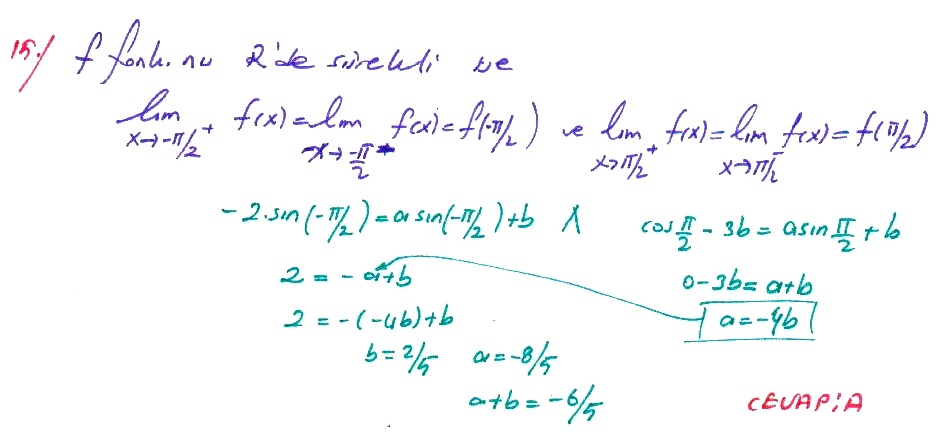 15-/ f fonk. nu R'de sürekli ve
lim x→-π/2⁺ f(x) = lim x→-π/2⁻ f(x) = f(-π/2) ve lim x→π/2⁺ f(x) = lim x→π/2⁻ f(x) = f(π/2)
-2.sin(-π/2) = a sin(-π/2) + b ∧ cos π/2 - 3b = a sin π/2 + b
2 = -a+b 0-3b = a+b
2 = -(-4b)+b a = -4b
b = 2/5 a = -8/5
a+b = -6/5 CEVAP: A